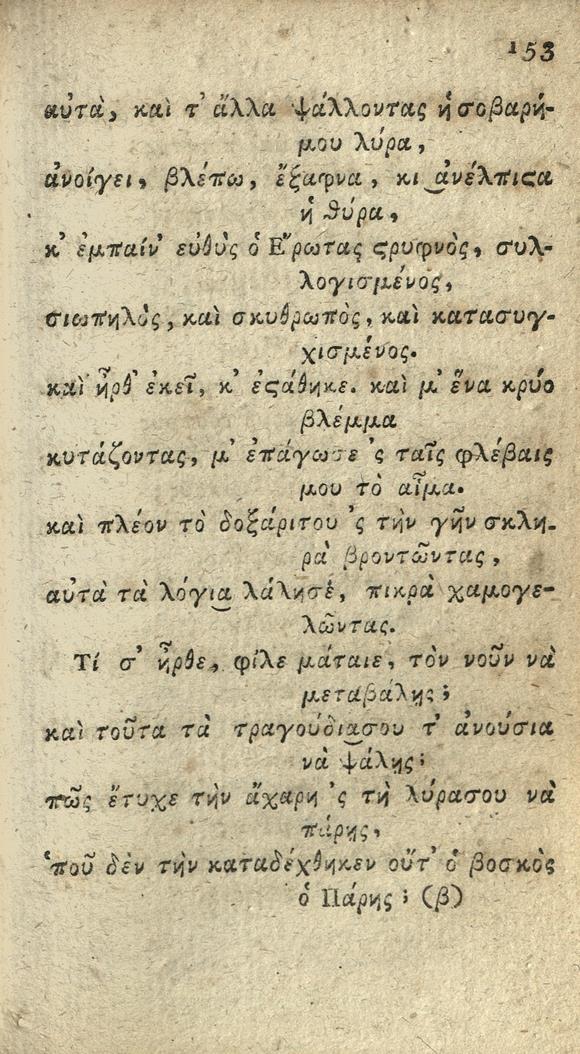 153
αὐτὰ, καὶ τ' ἄλλα ψάλλοντας ἡσοβαρή-
μου λύρα,
ἀνοίγει, βλέπω, ἔξαφνα, κι ἀνέλπιςα
ἡ θύρα,
κ' ἐμπαίν' εὐθὺς ὁ Ἔρωτας ςρυφνὸς, συλ-
λογισμένος,
σιωπηλὸς, καὶ σκυθρωπὸς, καὶ κατασυγ-
χισμένος.
καὶ ἦρθ' ἐκεῖ, κ' ἐςάθηκε. καὶ μ' ἕνα κρύο
βλέμμα
κυτάζοντας, μ' ἐπάγωσε 'ς ταῖς φλέβαις
μου τὸ αἷμα.
καὶ πλέον τὸ δοξάριτου 'ς τὴν γῆν σκλη-
ρὰ βροντῶντας,
αὐτὰ τὰ λόγια λάλησέ, πικρὰ χαμογε-
λῶντας.
Τί σ' ἦρθε, φίλε μάταιε, τὸν νοῦν νὰ
μεταβάλῃς;
καὶ τοῦτα τὰ τραγούδιασου τ' ἀνούσια
νὰ ψάλῃς;
πῶς ἔτυχε τὴν ἄχαρη 'ς τὴ λύρασου νὰ
πάρῃς,
ὁποῦ δὲν τὴν καταδέχθηκεν οὔτ' ὁ βοσκὸς
ὁ Πάρης; (β)